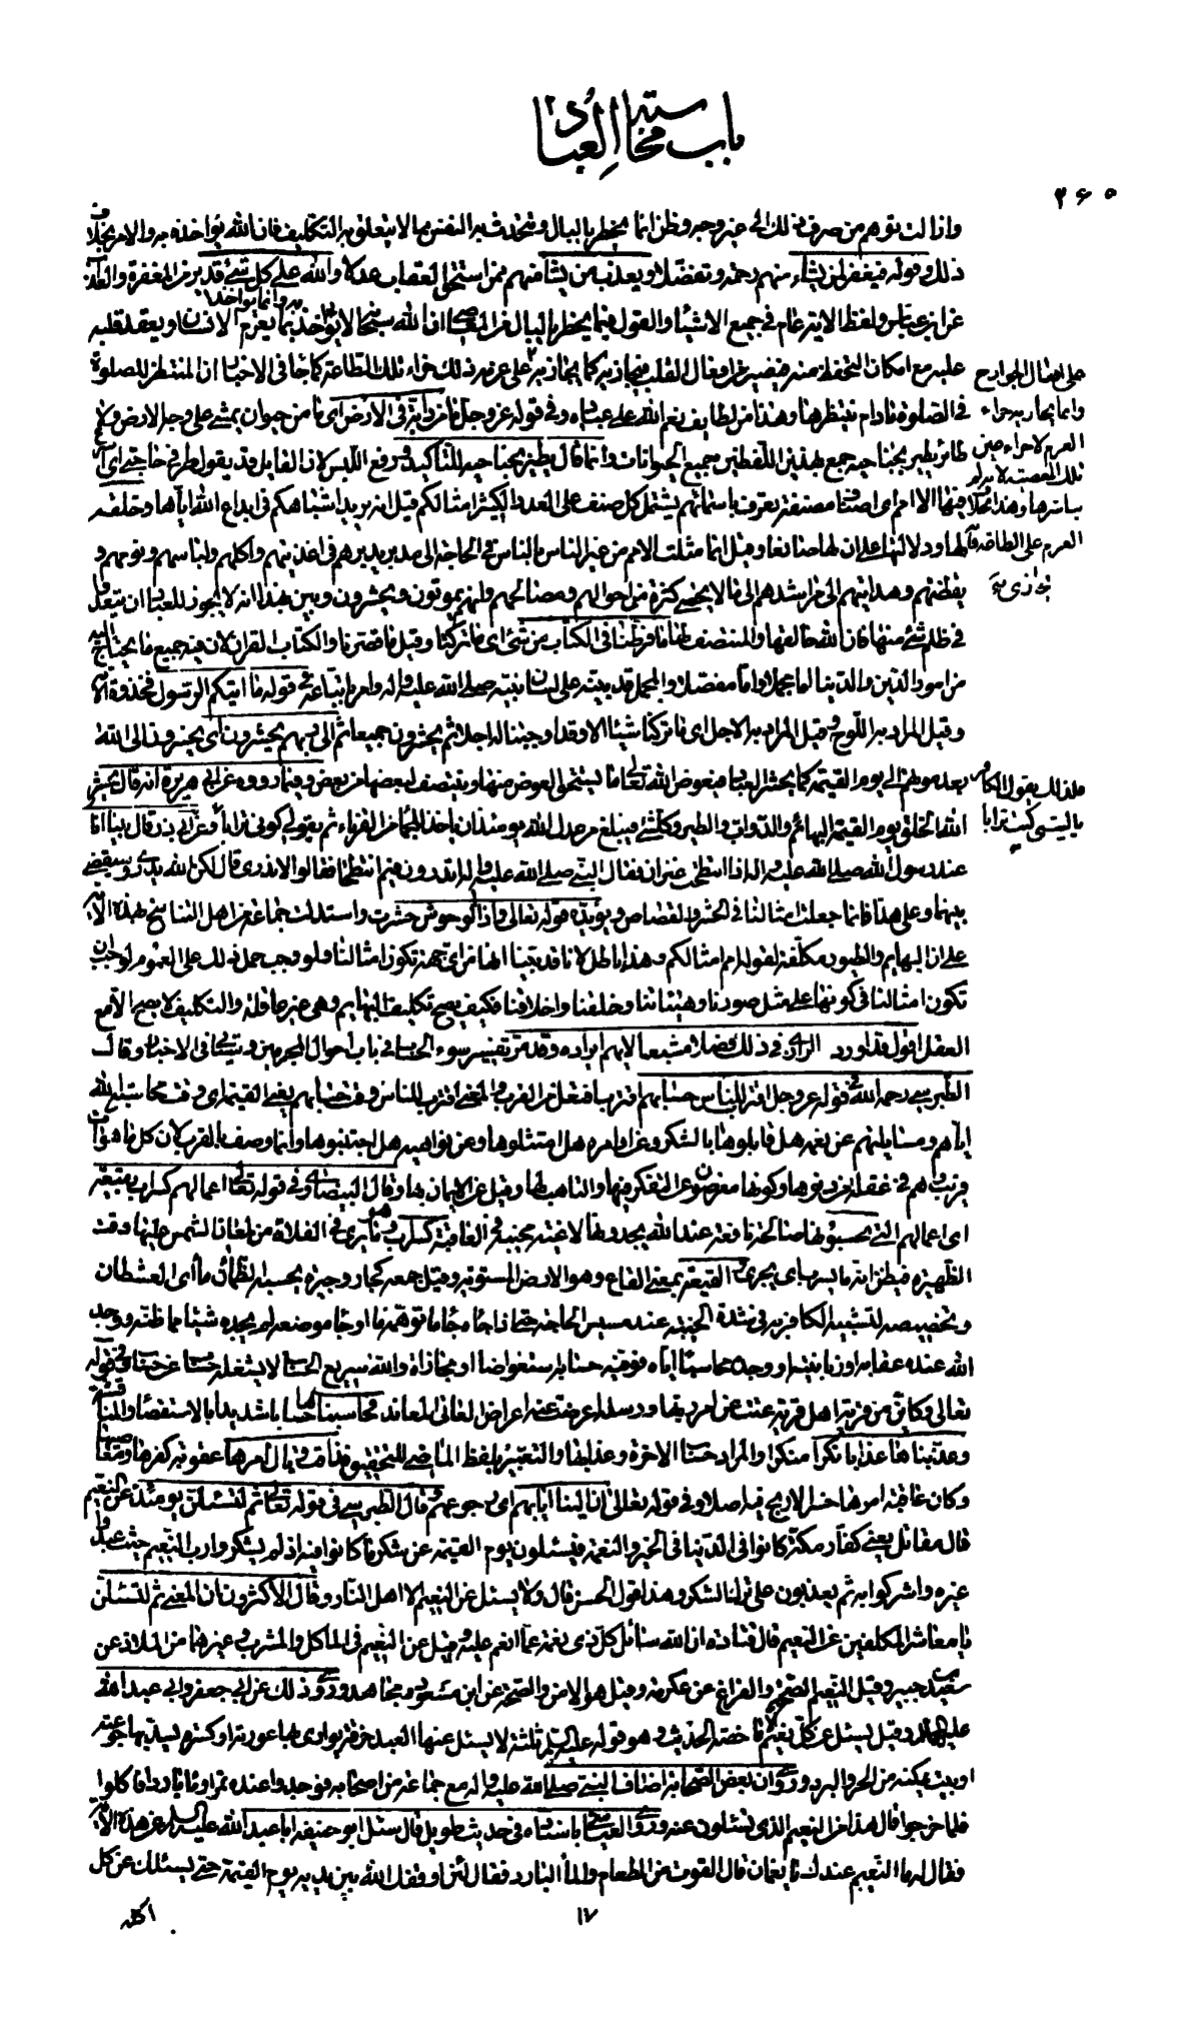 باب محاسبة العباد
٢٦٥
وظن انما يخطر بالبال وتتحدث به النفس مما لا يتعلق به التكليف فان الله يؤاخذه به والامر بخلاف
ذلك وقوله فيغفر لمن يشاء منهم رحمة وتفضلا ويعذب من يشاء منهم ممن استحق العقاب عدلا والله على كل شئ قدير من المغفرة والعذاب
عن ابن عباس ولفظ الاية عام في جميع الاشياء والقول فيما يخطر بالبال من المعاصي ان الله سبحانه لا يؤاخذ به وانما يؤاخذ بما يعزم الانسان ويعقد قلبه
عليه مع امكان التحفظ عنه فيصير من افعال القلب فيجازيه كما يجازيه على افعال الجوارح
وانما يجازيه جزاء العزم لا جزاء عين تلك المعصية لانه لم يباشرها وهذا بخلاف العزم على الطاعة فان
العازم على فعل الطاعة يجازى على عزمه ذلك جزاء تلك الطاعة كما جاء في الاخبار ان المنتظر للصلوة
في الصلوة ما دام ينتظرها وهذا من لطايف نعم الله على عباده وفي قوله عز وجل وما من دابة في الارض اى ما من حيوان يمشى على وجه الارض ولا
طائر يطير بجناحيه جمع بهذين اللفظين جميع الحيوانات وانما قال يطير بجناحيه للتأكيد ورفع اللبس لان القايل قد يقول طر في حاجتي اى
فيها الا امم اى اصناف مصنفة تعرف باسمائها يشتمل كل صنف على العدد الكثير امثالكم قيل انه يريد اشباهكم في ابداع الله اياها وخلقه
لها ودلالتها على ان لها صانعا وقيل انما مثلت الامم من غير الناس بالناس في الحاجة الى مدبر يدبرهم في اغذيتهم واكلهم ولباسهم ونومهم و
يقظتهم وهدايتهم الى مراشدهم الى ما لا يحصى كثرة من احوالهم ومصالحهم وانهم يموتون ويحشرون وبين بهذا انه لا يجوز للعباد ان يتعدوا
في ظلم شئ منها فان الله خالقها والمنتصف لها ما فرطنا في الكتاب من شئ اى ما تركنا وقيل ما قصرنا والكتاب القران لان فيه جميع ما يحتاج اليه
من امور الدين والدنيا اما مجملا واما مفصلا والمجمل قد بينه على لسان نبيه صلى الله عليه وآله وامر باتباعه في قوله ما آتيكم الرسول فخذوه الاية
وقيل المراد به اللوح وقيل المراد به الاجل اى ما تركنا شيئا الا وقد اوجبنا له اجلا ثم يحشرون جميعا ثم الى ربهم يحشرون اى يحشرون الى الله
بعد موتهم الى يوم القيمة كما يحشر العباد فيعوض الله تعالى ما يستحق العوض منها وينتصف لبعضها من بعض وفيما رووه عن ابي هريرة انه قال يحشر
الله الخلق يوم القيمة البهائم والدواب والطير وكل شئ فيبلغ من عدل الله يومئذ ان ياخذ للجماء من القرناء ثم يقول كوني ترابا
فلذلك يقول الكافر يا ليتني كنت ترابا
وعن ابي ذر قال بينا انا
عند رسول الله صلى الله عليه وآله اذا انتطحت عنزان فقال النبي صلى الله عليه وآله اتدرون فيم انتطحا فقالوا لا ندري قال لكن الله يدري وسيقضى
بينهما وعلى هذا فانما جعلت امثالنا في الحشر والقصاص ويؤيده قوله تعالى واذا الوحوش حشرت واستدلت جماعة من اهل التناسخ بهذه الاية
على ان البهايم والطيور مكلفة لقوله امم امثالكم وهذا باطل لانا قد بينا انها من اى جهة تكون امثالنا ولو وجب حمل ذلك على العموم لوجب ان
تكون امثالنا في كونها على مثل صورنا وهيئاتنا وخلقنا واخلاقنا فكيف يصح تكليف البهايم وهى غير عاقلة والتكليف لا يصح الا مع
العقل اقول قد اورد الرازي في ذلك فصلا مشبعا لا يهم ايراده وقد مر تفسير سوء الحساب في باب احوال المجرمين وسيأتي في الاخبار وقال
الطبرسي رحمه الله في قوله عز وجل اقترب للناس حسابهم اقترب افتعل من القرب والمعنى اقترب للناس وقت حسابهم يعنى القيمة اى وقت محاسبة الله
اياهم ومسايلتهم عن نعمه هل قابلوها بالشكر وعن اوامره هل امتثلوها وعن نواهيه هل اجتنبوها وانما وصف بالقرب لان كل ما هو آت
قريب وهم في غفلة من دنوها وكونها معرضون عن التفكر فيها والتاهب لها وقيل عن الايمان بها وقال البيضاوي في قوله تعالى اعمالهم كسراب بقيعة
اى اعمالهم التي يحسبونها صالحة نافعة عند الله يجدونها لاغية مخيبة في العاقبة كسراب وهو ما يرى في الفلاة من لمعان الشمس عليها وقت
الظهيرة فيظن انه ماء يسرب اى يجرى والقيعة بمعنى القاع وهو الارض المستوية وقيل جمعه كجار وجيرة يحسبه الظمآن ماء اى العطشان
وتخصيصه لتشبيه الكافر به في شدة الخيبة عند مسيس الحاجة حتى اذا جاءه جاء ما توهمه ماء او جاء موضعه لم يجده شيئا مما ظنه ووجد
الله عنده عقابه او زبانيته او وجده محاسبا اياه فوفيه حسابه استعواضا او مجازاة والله سريع الحساب لا يشغله حساب عن حساب وفي قوله
تعالى وكأين من قرية اهل قرية عتت عن امر ربها ورسله اعرضت عنه اعراض العاتي المعاند فحاسبناها حسابا شديدا بالاستقصاء والمناقشة
وعذبناها عذابا نكرا منكرا والمراد حساب الاخرة وعذابها والتعبير بلفظ الماضي للتحقيق فذاقت وبال امرها عقوبة كفرها ومعاصيها
وكان عاقبة امرها خسرا لا ربح فيه اصلا وفي قوله تعالى ان الينا ايابهم اى رجوعهم وقال الطبرسي في قوله تعالى ثم لتسئلن يومئذ عن النعيم
قال مقاتل يعنى كفار مكة كانوا في الدنيا في الخير والنعمة فيسئلون يوم القيمة عن شكر ما كانوا فيه اذ لم يشكروا رب النعيم حيث عبدوا
غيره واشركوا به ثم يعذبون على ترك الشكر وهذا قول الحسن قال ولا يسئل عن النعيم الا اهل النار وقال الاكثرون ان المعنى ثم لتسئلن
يا معاشر المكلفين عن النعيم قال قتادة ان الله سائل كل ذي نعمة عما انعم عليه وقيل عن النعيم في الماكل والمشرب وغيرهما من الملاذ عن
سعيد بن جبير وقيل النعيم الصحة والفراغ عن عكرمة وقيل هو الامن والصحة عن ابن مسعود ومجاهد وروى ذلك عن ابي جعفر وابي عبد الله
عليهما السلام وقيل يسئل عن كل نعيم الا ما خصه الحديث وهو قوله عليه السلام ثلثة لا يسئل عنها العبد خرقة يواري بها عورته او كسرة يسد بها جوعته
او بيت يكنه من الحر والبرد وروى ان بعض الصحابة اضاف النبي صلى الله عليه وآله مع جماعة من اصحابه فوجدوا عنده تمرا وماء باردا فاكلوا
فلما خرجوا قال هذا من النعيم الذي تسئلون عنه وروى العياشي باسناده في حديث طويل قال سئل ابو حنيفة ابا عبد الله عليه السلام عن هذه الاية
فقال له ما النعيم عندك يا نعمان قال القوت من الطعام والماء البارد فقال لئن اوقفك الله بين يديه يوم القيمة حتى يسئلك عن كل
١٧
اكلة